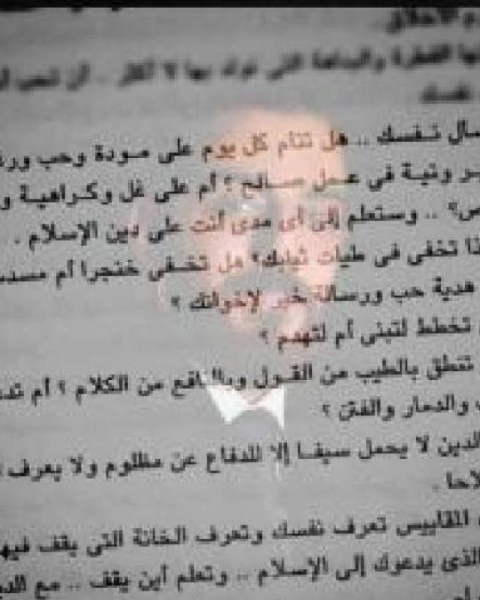 م الأخلاق.
ها الفطرة والبداهة التى نولد بها لا أكثر .. أن تحب
نفسك
سال نفسك .. هل تنام كل يوم على مودة وحب
ـر ونية فى عمل صالح ؟ أم على غل وكراهية و
ص؟ .. وستعلم إلى أى مدى أنت على دين الإسلام .
ذا تخفى فى طيات ثيابك؟ هل تخفى خنجرا أم مسد
هدية حب ورسالة خير لإخوانك ؟
تخطط لتبنى أم لتهدم ؟
تنطق بالطيب من القول وبالنافع من الكلام ؟ أم تد
والدمار والفتن ؟
الدين لا يحمل سيفا إلا للدفاع عن مظلوم ولا يعرف
لاحا .
المقاييس تعرف نفسك وتعرف الخانة التى يقف فيها
الذى يدعوك إلى الإسلام .. وتعلم أين يقف .. مع